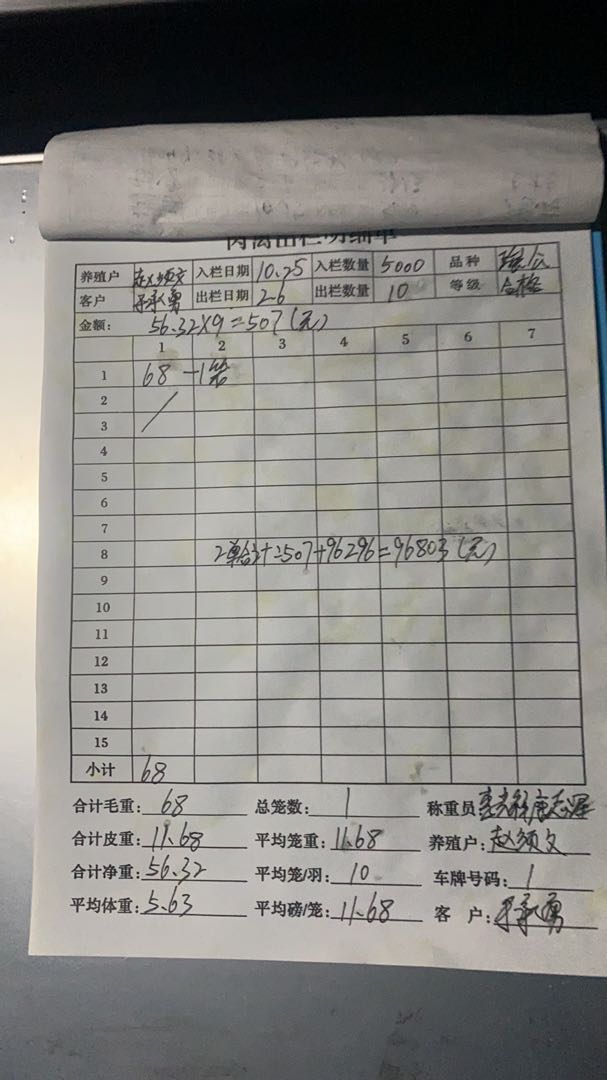 肉禽出栏明细单
养殖户 赵须文 入栏日期 10.25 入栏数量 5000 品种
客户 承勇 出栏日期 2.6 出栏数量 10 等级 合格
金额: 56.32×9=507(元)
1 2 3 4 5 6 7
1 68 一1笼
2
3
4
5
6
7
8 2单合计:507+96296=96803(元)
9
10
11
12
13
14
15
小计 68
合计毛重: 68 总笼数: 1 称重员
合计皮重: 11.68 平均笼重: 11.68 养殖户: 赵须文
合计净重: 56.32 平均笼/羽: 10 车牌号码: 1
平均体重: 5.63 平均磅/笼: 11.68 客 户: 承勇